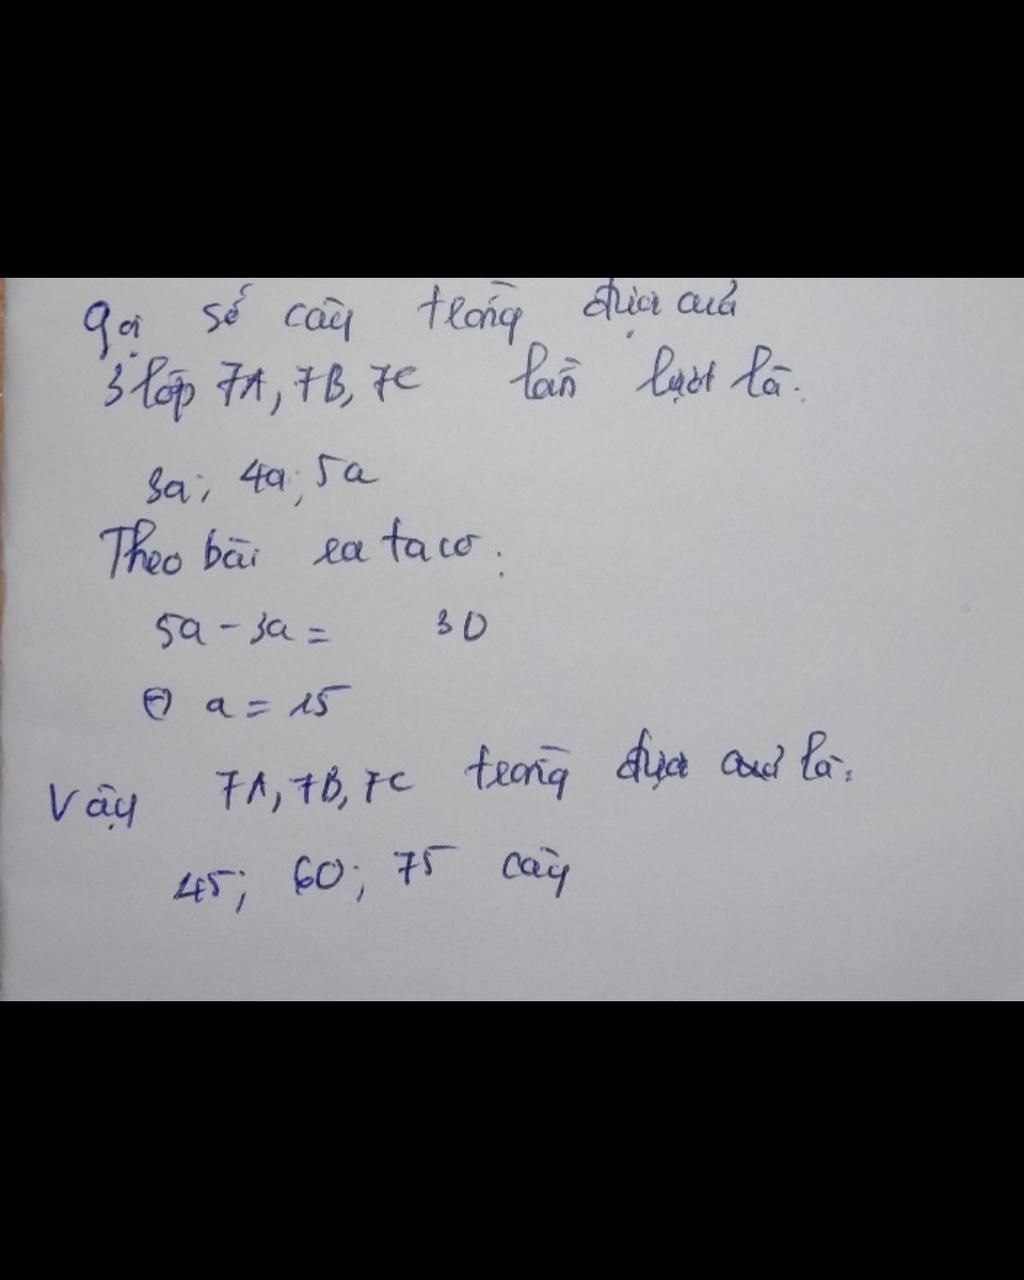 Gọi số cây trồng được của
3 lớp 7A, 7B, 7C lần lượt là.
3a; 4a; 5a
Theo bài ra ta có:
5a - 3a = 30
⇔ a = 15
Vậy 7A, 7B, 7C trồng được của là:
45; 60; 75 cây